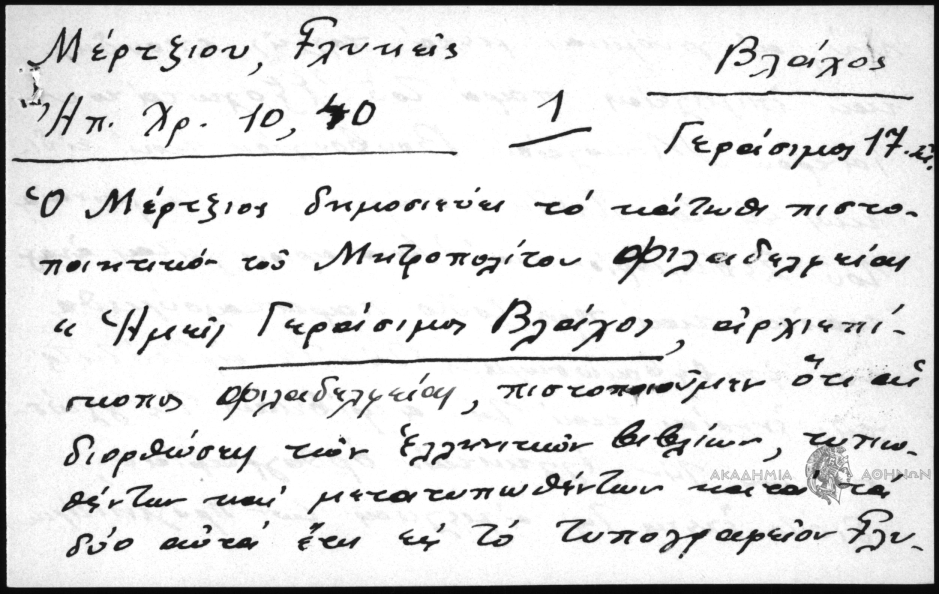 Μέρτζιου, Γλυκεῖς
Βλάχος
Ἠπ. Χρ. 10, 40
1
Γεράσιμος 17.
Ὁ Μέρτζιος δημοσιεύει τό κάτωθι πιστο-
ποιητικό τοῦ Μητροπολίτου Φιλαδελφείας
« Ἡμεῖς Γεράσιμος Βλάχος, ἀρχιεπί-
σκοπος Φιλαδελφείας, πιστοποιοῦμεν ὅτι αἱ
διορθώσεις τῶν Ἑλληνικῶν βιβλίων, τυπω-
θέντων καί μετατυπωθέντων κατά τά
δύο αὐτά ἔτη εἰς τό τυπογραφεῖον Γλυ-
ΑΚΑΔΗΜΙΑ ΑΘΗΝΩΝ